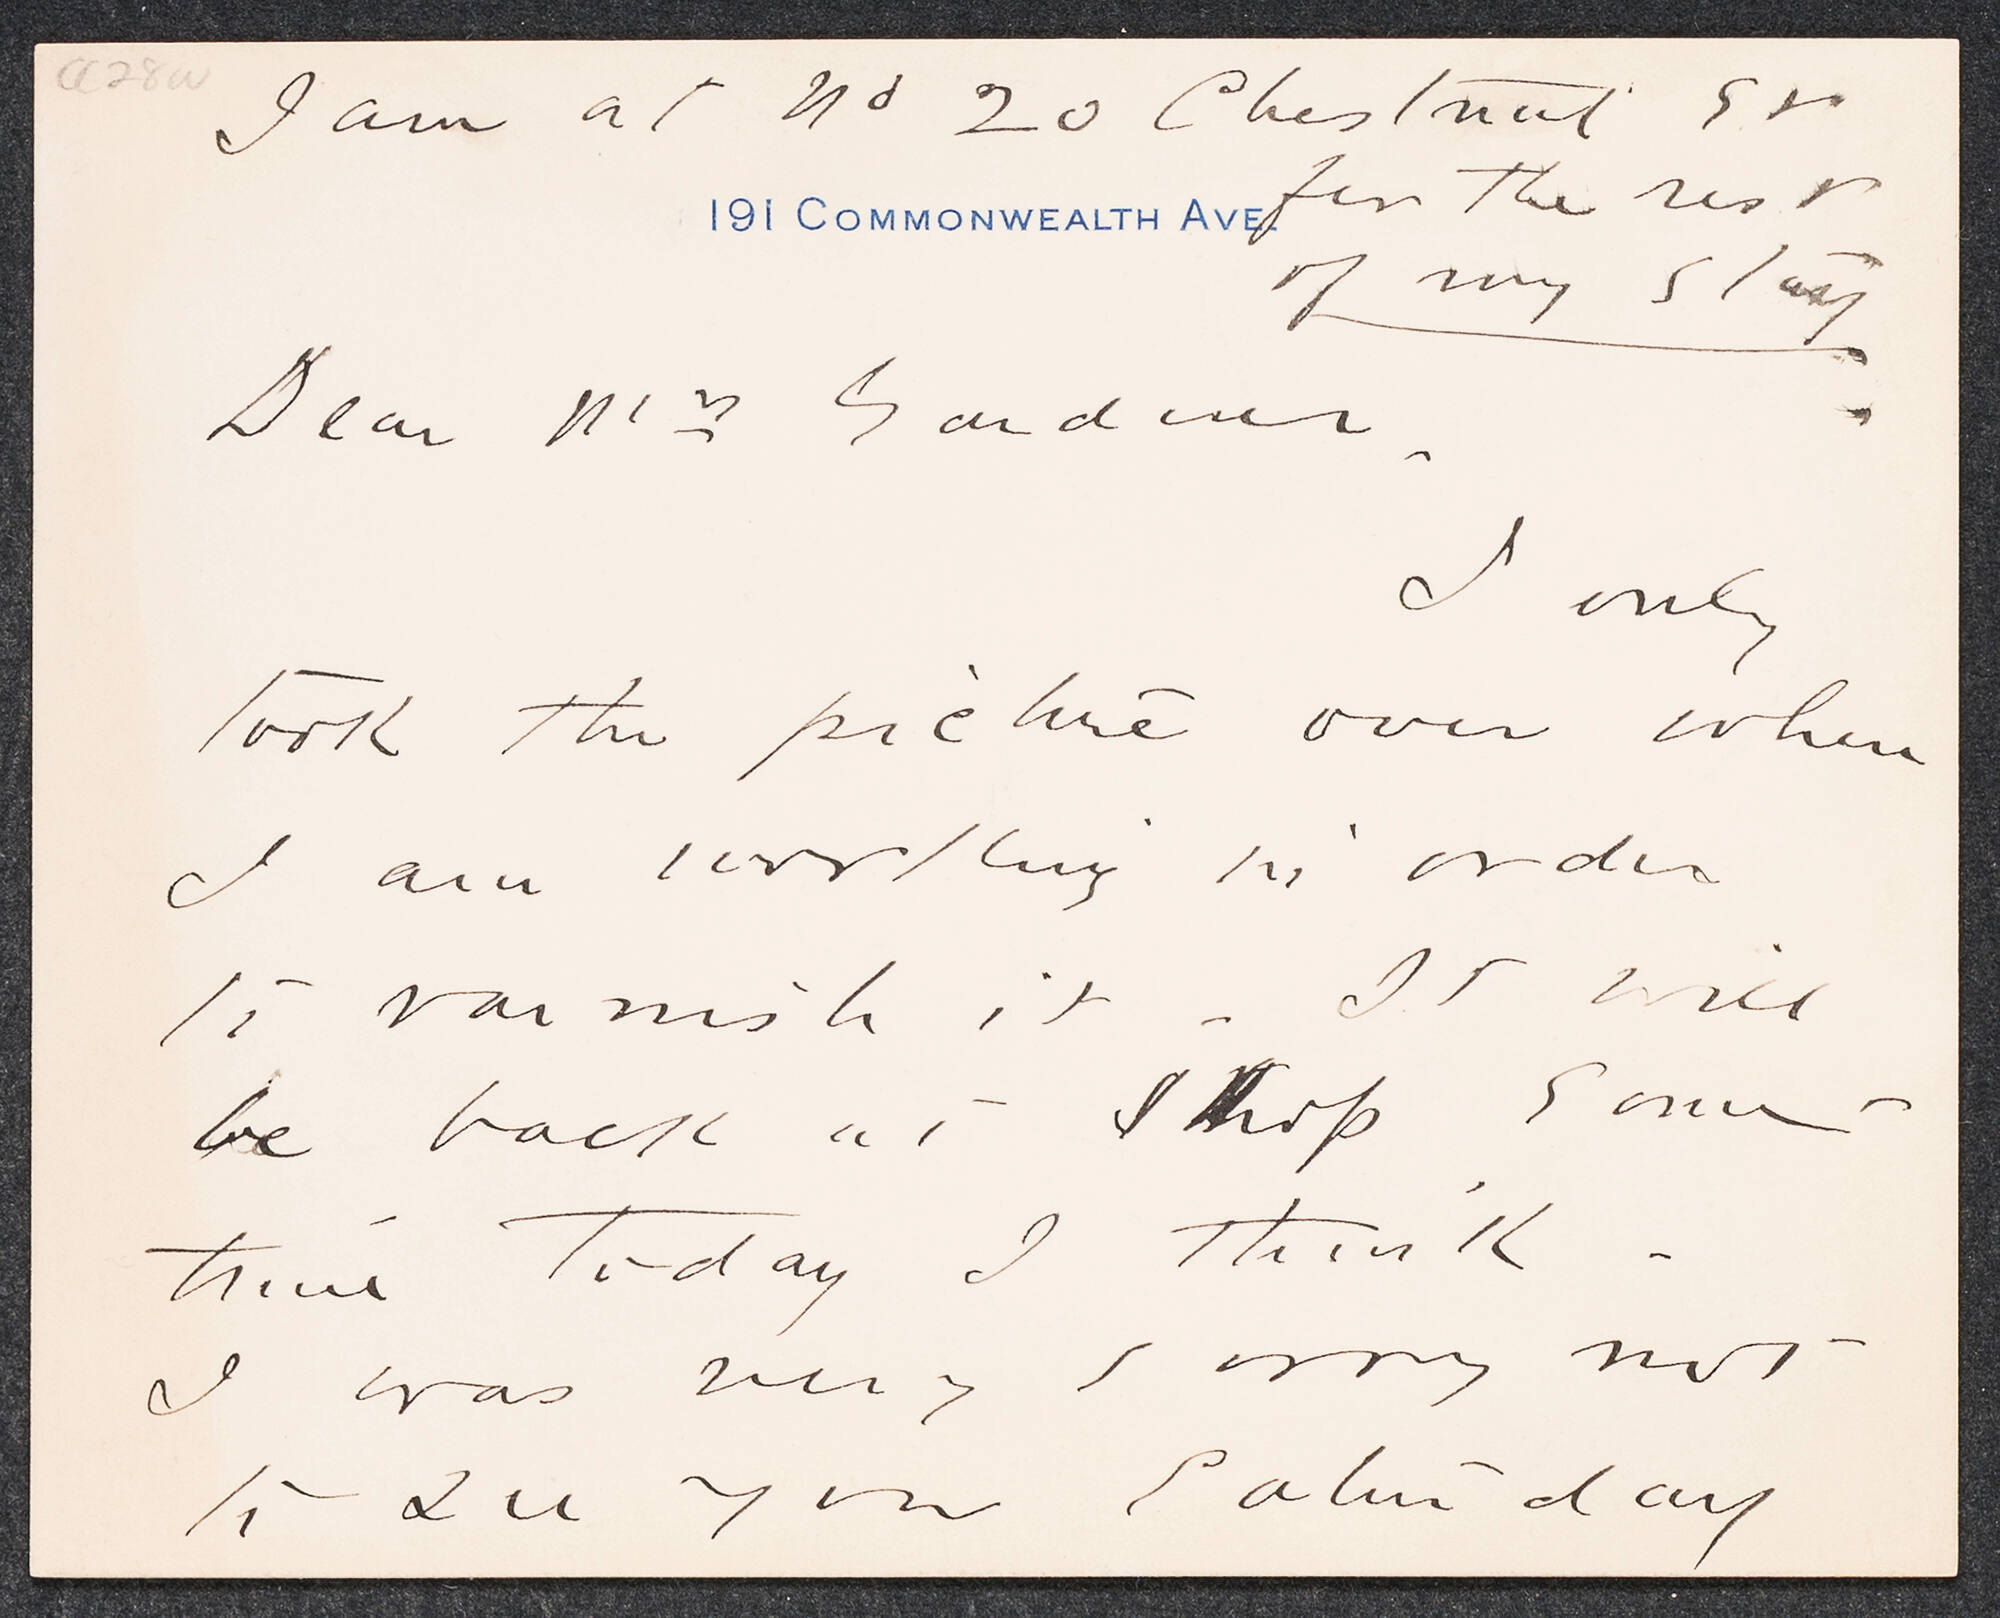 I am at No 20 Chestnut St
for the rest
of my stay
191 COMMONWEALTH AVE.
Dear Mrs Gardner.
I only
took the picture over where
I am working in order
to varnish it - It will
be back at shop some-
time today I think -
I was very sorry not
to see you Saturday